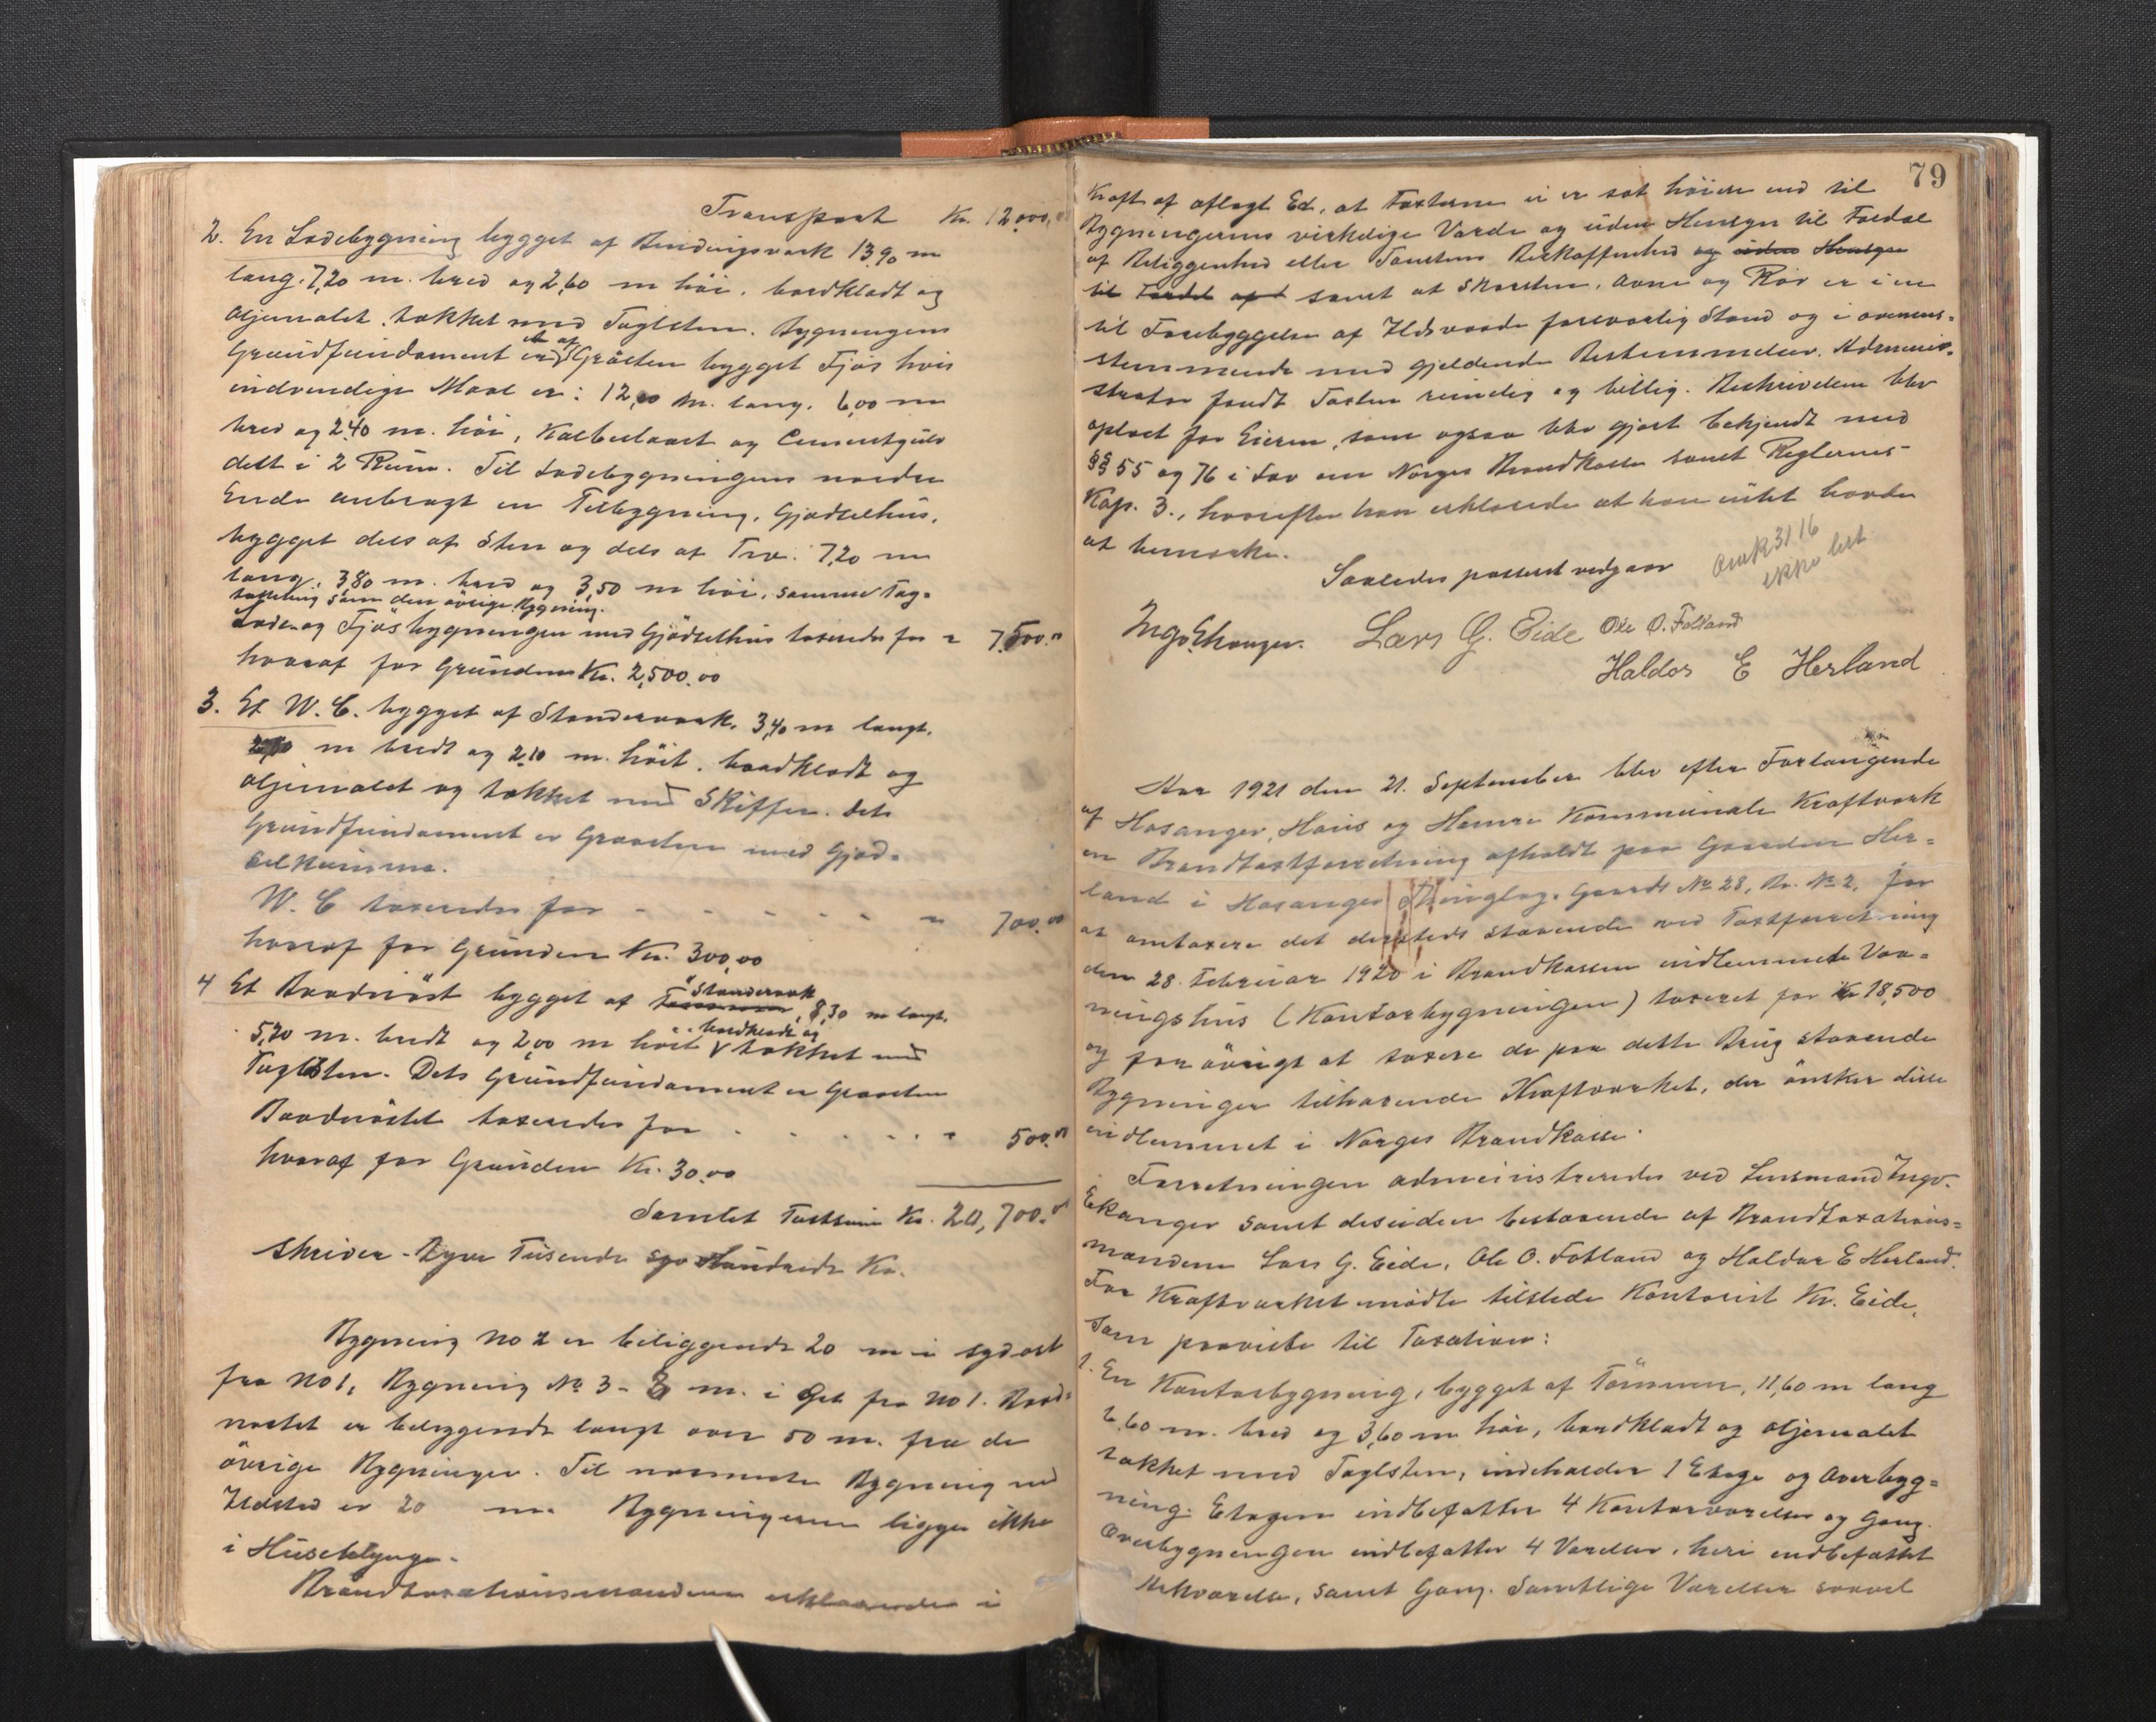 Transport Kr. 12,000,00
2. En Ladebygning bygget af Bindingsverk 13,90 m
lang, 7,20 m. bred og 2,60 m høi, bordklædt og
oljemalet, tækket med Taglsten. Bygningens
Grundfundament er et af Gråsten bygget Fjøs hvis
indvendige Maal er: 12,00 m. lang, 6,00 m
bred og 2,40 m. høi, og Cementgulv
delt i 2 Rum. Til Ladebygningens nordre
Ende anbragt en Tilbygning, Gjødselhus,
bygget dels af Sten og dels af Træ. 7,20 m
lang, 3,80 m. bred og 3,50 m høi, samme Tag-
tækking som den øvrige Bygning.
Lade- og Fjøsbygningen med Gjødselhus taxeredes for " 7,500.00
hvoraf for Grunden Kr. 2,500.00
3. Et W. C. bygget af Standerverk, 3,40 m langt,
m bredt og 2,10 m. høit, bordklædt og
oljemalet og tækket med Skiffer. Dets
Grundfundament er Graasten med Gjød-
selkumme.
W. C taxeredes for - - - - - " 700.00
hvoraf for Grunden Kr. 300,00
4 Et Baadnøst bygget af Tømmer Standerverk, 8,30 m langt,
5,70 m. bredt og 2,00 m høit bordklædt og tækket med
Taglsten. Dets Grundfundament er Graasten
Baadnøstet taxeredes for - - - - - " 500.00
hvoraf for Grunden Kr. 30.00
Samlet Taxtsum Kr. 20,700.00
skriver - Tyve Tusende syv Hundrede Kr.
Bygning No 2 er beliggende 20 m i sydost
fra No 1, Bygning No 3 - 8 m. i Øst fra No 1. Baad-
nøstet er beliggende langt over 50 m. fra de
øvrige Bygninger. Til nærmeste Bygning med
Ildsted er 20 m. Bygningerne ligger ikke
i Huseklynge.
Brandtaxationsmændene erklærede i
79
Kraft af aflagt Ed, at Taxterne ei er sat høiere end til
Bygningernes virkelige Værdi og uden Hensyn til Fordel
af Beliggenhed eller Tomtens Beskaffenhed og uden Hensyn
til Fordel af samt at Skorsten, Ovne og Rør er i en
til Forebyggelse af Ildsvaade forsvarlig Stand og i overens-
stemmende med gjeldende Bestemmelser. Admini-
strator fandt Taxten rimelig og billig. Beskrivelsen blev
oplæst for Eieren, som ogsaa blev gjort bekjendt med
§§ 55 og 76 i Lov om Norges Brandkasse samt Reglernes
Kap. 3., hvorefter han erklærede at han intet havde
at bemærke.
Saaledes passeret vedgaar
Ingv Ekanger. Lars G. Eide Ole O. Fotland
Haldor E Herland
Aar 1921 den 21. September blev efter Forlangende
af Hosanger, Haus og Hamre Kommunale Kraftverk
en Brandtaxtforretning afholdt paa Gaarden Her-
land i Hosanger Thinglag, Gaards No 28, Br. No 2, for
at omtaxere det dersteds staaende ved Taxtforretning
den 28. Februar 1920 i Brandkassen indlemmede Vaa-
ningshus (Kontorbygningen) taxeret for Kr 18,500
og forøvrigt at taxere de paa dette Brug staaende
Bygninger tilhørende Kraftverket, der ønskes disse
indlemmet i Norges Brandkasse.
Forretningen administreredes ved Lensmand Ingv.
Ekanger samt desuden bestaaende af Brandtaxations-
mændene Lars G. Eide, Ole O. Fotland og Haldor E Herland.
For Kraftverket mødte tilstede Kontorist Kr. Eide,
som paaviste til Taxation:
1. En Kontorbygning, bygget af Tømmer, 11,60 m lang
6,60 m. bred og 3,60 m høi, bordklædt og oljemalet
tækket med Taglsten, indeholder 1 Etage og Overbyg-
ning. Etagen indbefatter 4 Kontorværelser og Gang.
Overbygningen indbefatter 4 Værelser, heri indbefattet
samt Gang. Samtlige Værelser saavel